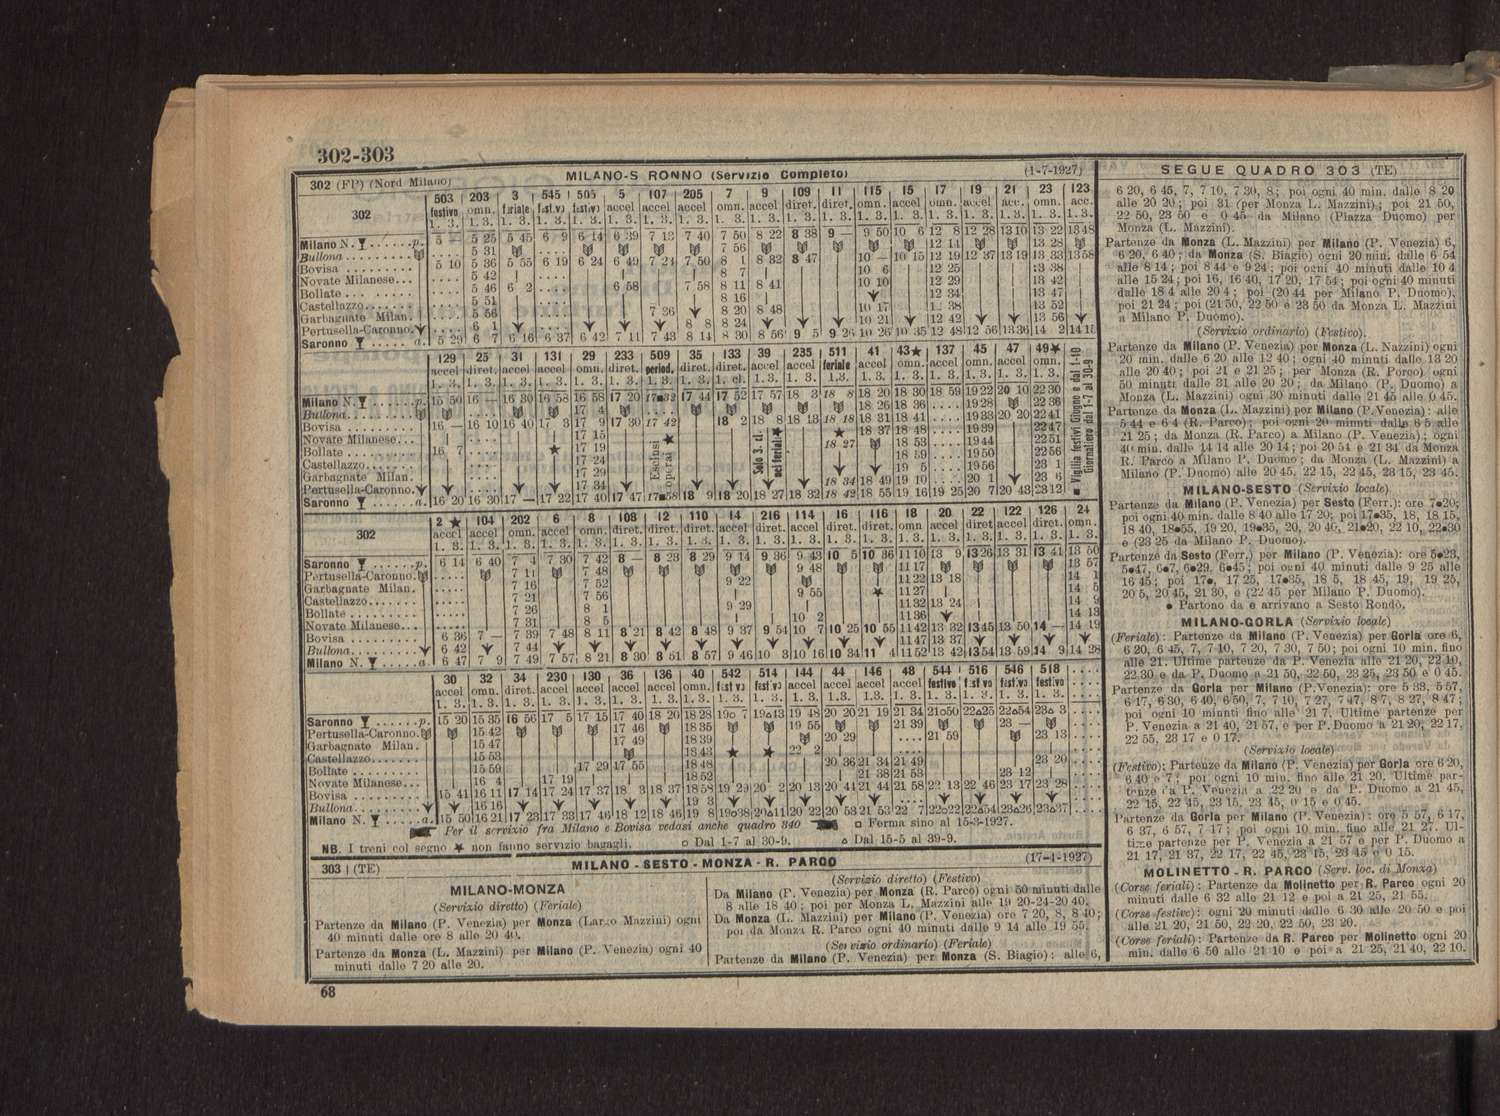 302-303
302 (FP) (Nord Milano) MILANO-S RONNO (Servizio Completo) (1-7-1927)
302 503 203 3 545 505 5 107 205 7 9 109 11 115 15 17 19 21 23 123
festivo omn. feriale fest.vo festivo accel accel accel omn. accel diret. diret. omn. accel omn. accel acc. omn. acc.
1. 3. 1. 3. 1. 3. 1. 3. 1. 3. 1. 3. 1. 3. 1. 3. 1. 3. 1. 3. 1. 3. 1. 3. 1. 3. 1. 3. 1. 3. 1. 3. 1. 3. 1. 3. 1. 3.
Milano N. p. 5 — 5 25 5 45 6 9 6 14 6 39 7 13 7 40 7 50 8 22 8 38 9 — 9 50 10 6 12 8 12 28 13 10 13 22 13 48
Bullona 5 31 7 56 12 14 13 28
Bovisa 5 10 5 36 5 55 6 19 6 24 6 49 7 24 7 50 8 1 8 32 8 47 10 — 10 15 12 19 12 37 13 19 13 33 13 58
Novate Milanese 5 42 8 7 10 6 12 25 13 38
Bollate 5 46 6 2 6 58 7 58 8 11 8 41 10 10 12 29 13 42
Castellazzo 5 51 8 16 12 34 13 47
Garbagnate Milan. 5 56 7 36 8 20 8 48 10 17 12 38 13 52
Pertusella-Caronno. 6 1 8 8 8 24 10 21 12 42 13 56
Saronno a. 5 29 6 7 6 16 6 37 6 42 7 11 7 43 8 14 8 30 8 56 9 5 9 26 10 26 10 35 12 48 12 56 13 36 14 2 14 15
129 25 31 131 29 233 509 35 133 39 235 511 41 43★ 137 45 47 49★
accel diret. accel accel omn. diret. period. diret. diret. accel accel feriale accel omn. accel omn. accel omn.
Milano N. p. 15 50 16 — 16 30 16 58 16 58 17 20 17●32 17 44 17 52 17 57 18 3 18 8 18 20 18 30 18 59 19 22 20 10 22 30
Bullona 17 4 18 26 18 36 19 28 22 36
Bovisa 16 — 16 10 16 40 17 3 17 9 17 30 17 42 18 2 18 8 18 13 18 18 18 31 18 41 19 33 20 20 22 41
Novate Milanese 17 15 18 37 18 48 19 39 22 47
Bollate 16 7 ★ 17 19 18 27 18 53 19 44 22 51
Castellazzo 17 24 18 59 19 50 22 56
Garbagnate Milan. 17 29 19 5 19 56 23 1
Pertusella-Caronno. 17 34 18 34 18 49 19 10 20 1 23 6
Saronno a. 16 20 16 30 17 — 17 22 17 40 17 47 17●58 18 9 18 20 18 27 18 32 18 42 18 55 19 16 19 25 20 7 20 43 23 12
Esclusi operai ★
Solo 3. cl. nei feriali ★
■ Vigilia festivi Giugno e dal 1-10
Giornaliero dal 1-7 al 30-9
302 2 ★ 104 202 6 8 108 12 110 14 216 114 16 116 18 20 22 122 126 24
accel accel omn. accel omn. diret. diret. diret. accel diret. accel diret. diret. omn accel diret accel diret. omn.
Saronno p. 6 14 6 40 7 4 7 30 7 42 8 — 8 23 8 29 9 14 9 36 9 43 10 5 10 36 11 10 13 9 13 26 13 31 13 41 13 50
Pertusella-Caronno. 7 11 7 48 9 48 11 17 13 57
Garbagnate Milan. 7 16 7 52 9 22 11 22 13 18 14 1
Castellazzo 7 21 7 56 9 55 ★ 11 27 14 5
Bollate 7 26 8 1 9 29 11 32 13 24 14 9
Novate Milanese 7 31 8 5 10 2 11 36 14 13
Bovisa 6 36 7 — 7 39 7 48 8 11 8 21 8 42 8 48 9 37 9 54 10 7 10 25 10 55 11 42 13 32 13 45 13 50 14 — 14 19
Bullona 6 42 7 44 11 47 13 37
Milano N. a 6 47 7 9 7 49 7 57 8 21 8 30 8 51 8 57 9 46 10 3 10 16 10 34 11 4 11 52 13 42 13 54 13 59 14 9 14 28
30 32 34 230 130 36 136 40 542 514 144 44 146 48 544 516 546 518
accel omn. diret. accel accel accel accel omn. fest vo fest.vo accel accel accel accel festivo f.st vo fest.vo festivo
Saronno p. 15 20 15 35 16 56 17 5 17 15 17 40 18 20 18 28 19○ 7 19▵13 19 48 20 20 21 19 21 34 21○50 22▵25 22▵54 23▵ 3
Pertusella-Caronno. 15 42 17 46 18 35 19 55 21 39 23 —
Garbagnate Milan. 15 47 17 49 18 39 20 29 21 59 23 13
Castellazzo 15 53 18 43 ★ ★ 22 2
Bollate 15 59 17 29 17 55 18 48 20 36 21 34 21 49 23 20
Novate Milanese 16 4 17 19 18 52 21 38 21 53 23 12
Bovisa 15 41 16 11 17 14 17 24 17 37 18 3 18 37 18 58 19 29 20 2 20 13 20 41 21 44 21 58 22 13 22 46 23 17 23 28
Bullona 16 16 19 3
Milano N. a. 15 50 16 21 17 23 17 33 17 46 18 12 18 46 19 8 19○38 20▵11 20 22 20 53 21 53 22 7 22○22 22▵54 23▵26 23▵37
Per il servizio fra Milano e Bovisa vedasi anche quadro 340 □ Ferma sino al 15-3-1927.
NB. I treni col segno ★ non fanno servizio bagagli. ○ Dal 1-7 al 30-9. ▵ Dal 15-5 al 39-9.
303 (TE) MILANO - SESTO - MONZA - R. PARCO (17-4-1927)
MILANO-MONZA
(Servizio diretto) (Feriale)
Partenze da Milano (P. Venezia) per Monza (Largo Mazzini) ogni
40 minuti dalle ore 8 alle 20 40.
Partenze da Monza (L. Mazzini) per Milano (P. Venezia) ogni 40
minuti dalle 7 20 alle 20.
(Servizio diretto) (Festivo)
Da Milano (P. Venezia) per Monza (R. Parco) ogni 50 minuti dalle
8 alle 18 40; poi per Monza L. Mazzini alle 19 20-24-20 40.
Da Monza (L. Mazzini) per Milano (P. Venezia) ore 7 20, 8, 8 40;
poi da Monza R. Parco ogni 40 minuti dalle 9 14 alle 19 55.
(Servizio ordinario) (Feriale)
Partenze da Milano (P. Venezia) per Monza (S. Biagio): alle 6,
SEGUE QUADRO 303 (TE)
6 20, 6 45, 7, 7 10, 7 30, 8; poi ogni 40 min. dalle 8 20
alle 20 20; poi 31 (per Monza L. Mazzini); poi 21 50,
22 50, 23 50 e 0 45 da Milano (Piazza Duomo) per
Monza (L. Mazzini).
Partenze da Monza (L. Mazzini) per Milano (P. Venezia) 6,
6 20, 6 40; da Monza (S. Biagio) ogni 20 min. dalle 6 54
alle 8 14; poi 8 44 e 9 24; poi ogni 40 minuti dalle 10 4
alle 15 24; poi 16, 16 40, 17 20, 17 54; poi ogni 40 minuti
dalle 18 4 alle 20 4; poi (20 44 per Milano P. Duomo),
poi 21 24; poi (21 50, 22 50 e 23 50 da Monza L. Mazzini
a Milano P. Duomo).
(Servizio ordinario) (Festivo).
Partenze da Milano (P. Venezia) per Monza (L. Nazzini) ogni
20 min. dalle 6 20 alle 12 40; ogni 40 minuti dalle 13 20
alle 20 40; poi 21 e 21 25; per Monza (R. Porco) ogni
50 minuti dalle 31 alle 20 20; da Milano (P. Duomo) a
Monza (L. Mazzini) ogni 30 minuti dalle 21 45 alle 0 45.
Partenze da Monza (L. Mazzini) per Milano (P. Venezia): alle
5 44 e 6 4 (R. Parco); poi ogni 20 minuti dalle 6 5 alle
21 25; da Monza (R. Parco) a Milano (P. Venezia); ogni
40 min. dalle 14 14 alle 20 14; poi 20 54 e 21 34 da Monza
R. Parco a Milano P. Duomo; da Monza (L. Mazzini) a
Milano (P. Duomo) alle 20 45, 22 15, 22 45, 23 15, 23 45.
MILANO-SESTO (Servizio locale)
Partenze da Milano (P. Venezia) per Sesto (Ferr.): ore 7●20;
poi ogni 40 min. dalle 8 40 alle 17 20; poi 17●35, 18, 18 15,
18 40, 18●55, 19 20, 19●35, 20, 20 40, 21●20, 22 10, 22●30
e (23 25 da Milano P. Duomo).
Partenze da Sesto (Ferr.) per Milano (P. Venezia): ore 5●23,
5●47, 6●7, 6●29, 6●45; poi ogni 40 minuti dalle 9 25 alle
16 45; poi 17●, 17 25, 17●35, 18 5, 18 45, 19, 19 25,
20 5, 20 45, 21 30, e (22 45 per Milano P. Duomo).
● Partono da e arrivano a Sesto Rondò.
MILANO-GORLA (Servizio locale)
(Feriale): Partenze da Milano (P. Venezia) per Gorla ore 6,
6 20, 6 45, 7, 7 10, 7 20, 7 30, 7 50; poi ogni 10 min. fino
alle 21. Ultime partenze da P. Venezia alle 21 20, 22 10,
22 30 e da P. Duomo a 21 50, 22 50, 23 25, 23 50 e 0 45.
Partenze da Gorla per Milano (P.Venezia): ore 5 33, 5 57,
6 17, 6 30, 6 40, 6 50, 7, 7 10, 7 27, 7 47, 8 7, 8 27, 8 47;
poi ogni 10 minuti fino alle 21 7. Ultime partenze per
P. Venezia a 21 40, 21 57, e per P. Duomo a 21 20, 22 17,
22 55, 23 17 e 0 17.
(Servizio locale)
(Festivo): Partenze da Milano (P. Venezia) per Gorla ore 6 20,
6 40 e 7; poi ogni 10 min. fino alle 21 20. Ultime par-
tenze da P. Venezia a 22 20 e da P. Duomo a 21 45,
22 15, 22 45, 23 15, 23 45, 0 15 e 0 45.
Partenze da Gorla per Milano (P. Venezia): ore 5 57, 6 17,
6 37, 6 57, 7 17; poi ogni 10 min. fino alle 21 27. Ul-
time partenze per P. Venezia a 21 57 e per P. Duomo a
21 17, 21 37, 22 17, 22 45, 23 15, 23 45 e 0 15.
MOLINETTO - R. PARCO (Serv. loc. di Monza)
(Corse feriali): Partenze da Molinetto per R. Parco ogni 20
minuti dalle 6 32 alle 21 12 e poi a 21 25, 21 55.
(Corse festive): ogni 20 minuti dalle 6 30 alle 20 50 e poi
alle 21 20, 21 50, 22 20, 22 50, 23 20.
(Corse feriali): Partenze da R. Parco per Molinetto ogni 20
min. dalle 6 50 alle 21 10 e poi a 21 25, 21 40, 22 10.
68